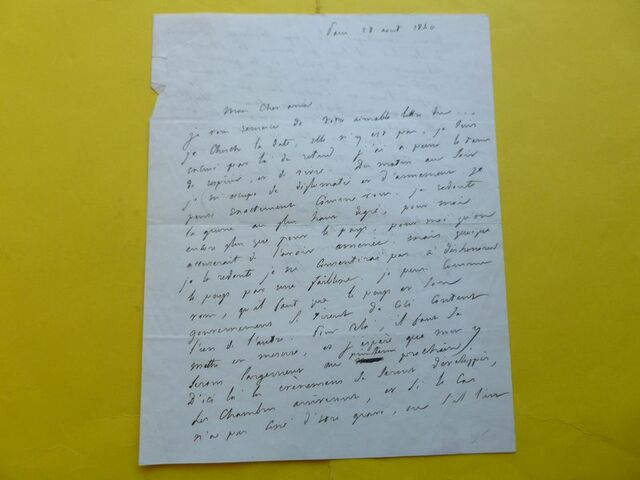 Paris 28 aout 1840
Mon cher ami
je vous remercie de votre aimable lettre du ...
je cherche la date, elle n'y est pas, je suis
excusé par là du retard. J'ai à peine le tems
de respirer, et de vivre. Du matin au soir
je m'occupe de diplomatie et d'armemens. Je
pense exactement comme vous. je redoute
la guerre au plus haut degré, pour moi
encore plus que pour le pays, pour moi qu'on
accuserait de l'avoir amenée mais quoique
je la redoute je ne consentirai pas à déshonorer
le pays par une faiblesse. je pense comme
vous, qu'il faut que le pays et son
gouvernement se tirent de là content
l'un de l'autre. Pour cela, il faut se
mettre en mesure, et j'espère que nous y
serons largement au printems prochain.
D'ici là les évènemens se seront développés,
les chambres arriveront, et si le cas
n'a pas cessé d'être grave, on